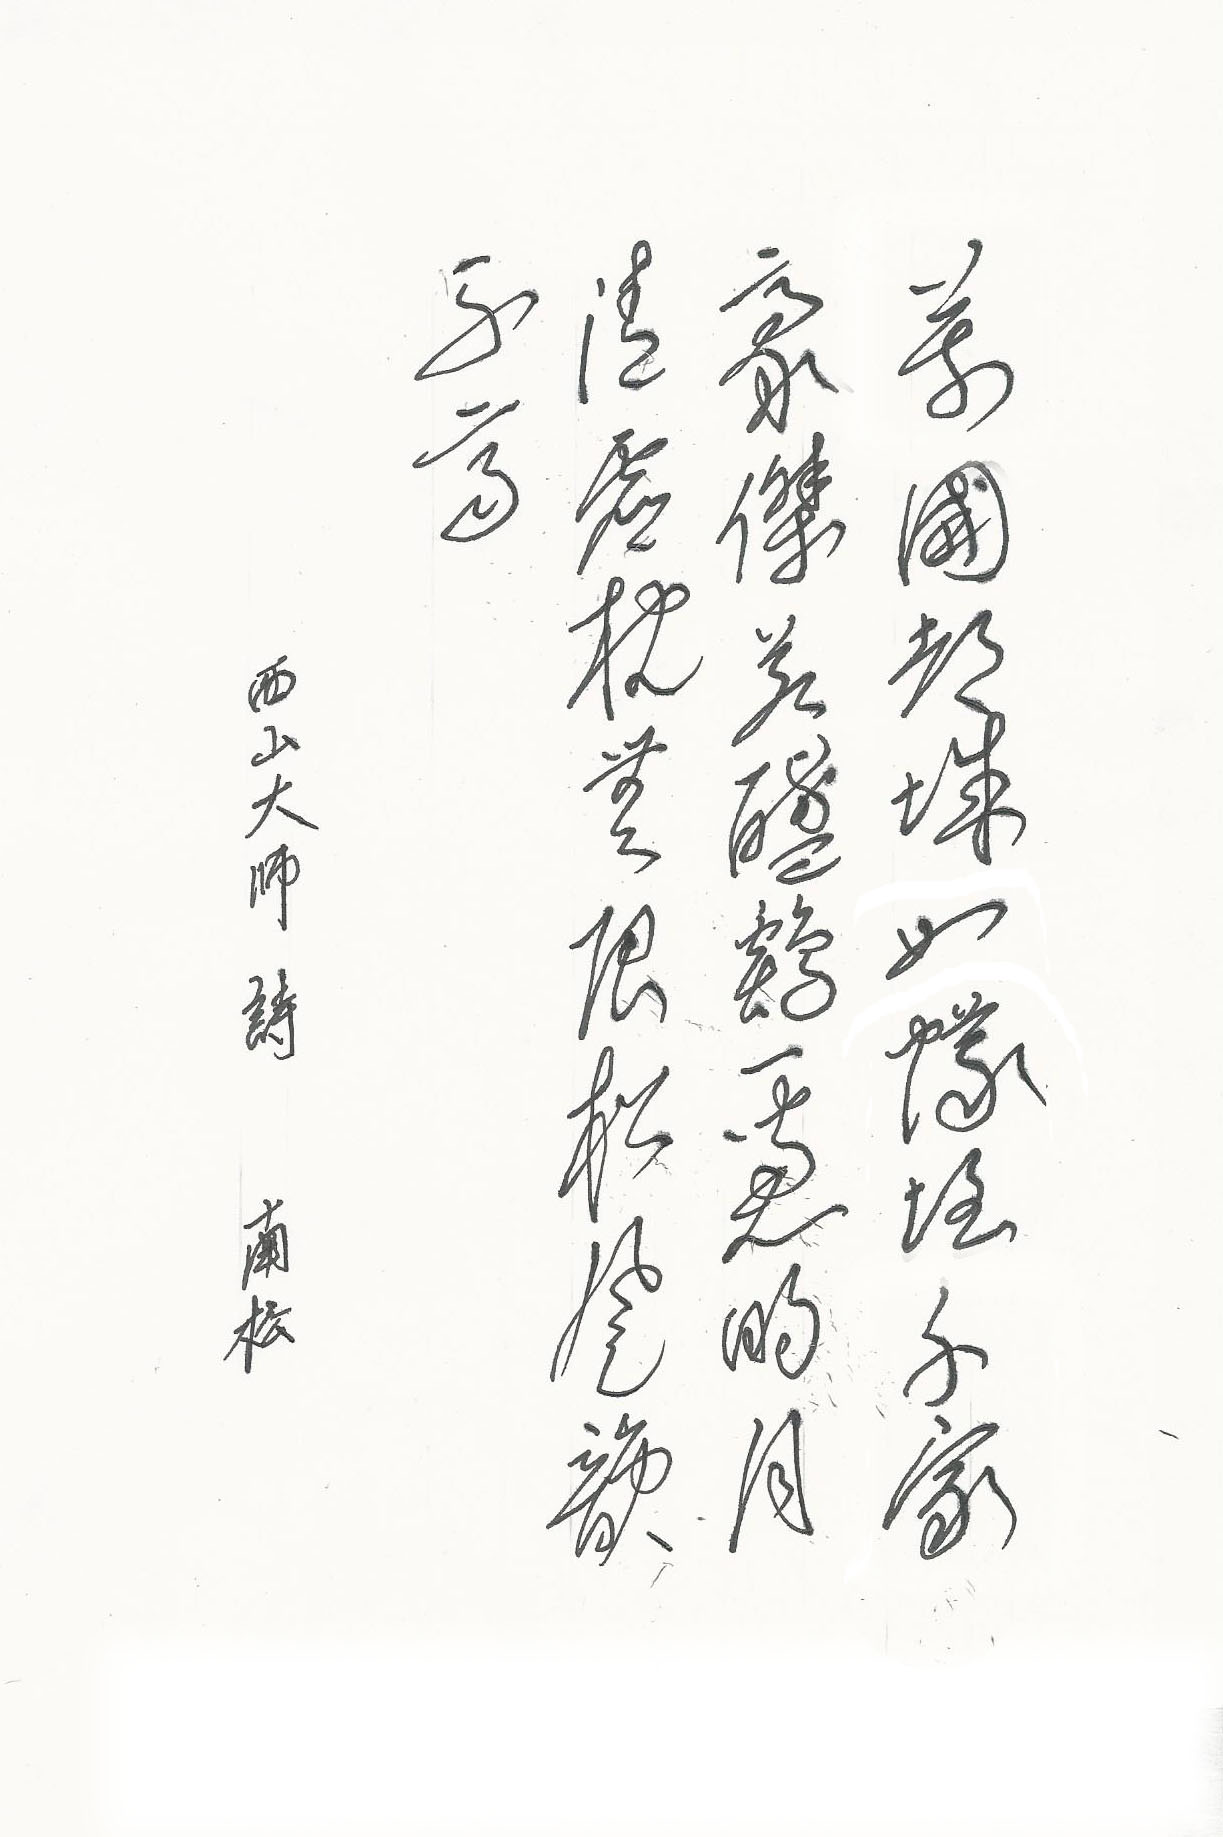 萬國都城如蟻垤千家
豪傑若醯鷄一窓明月
清虛枕無限松風韻
不齊
西山大師 詩